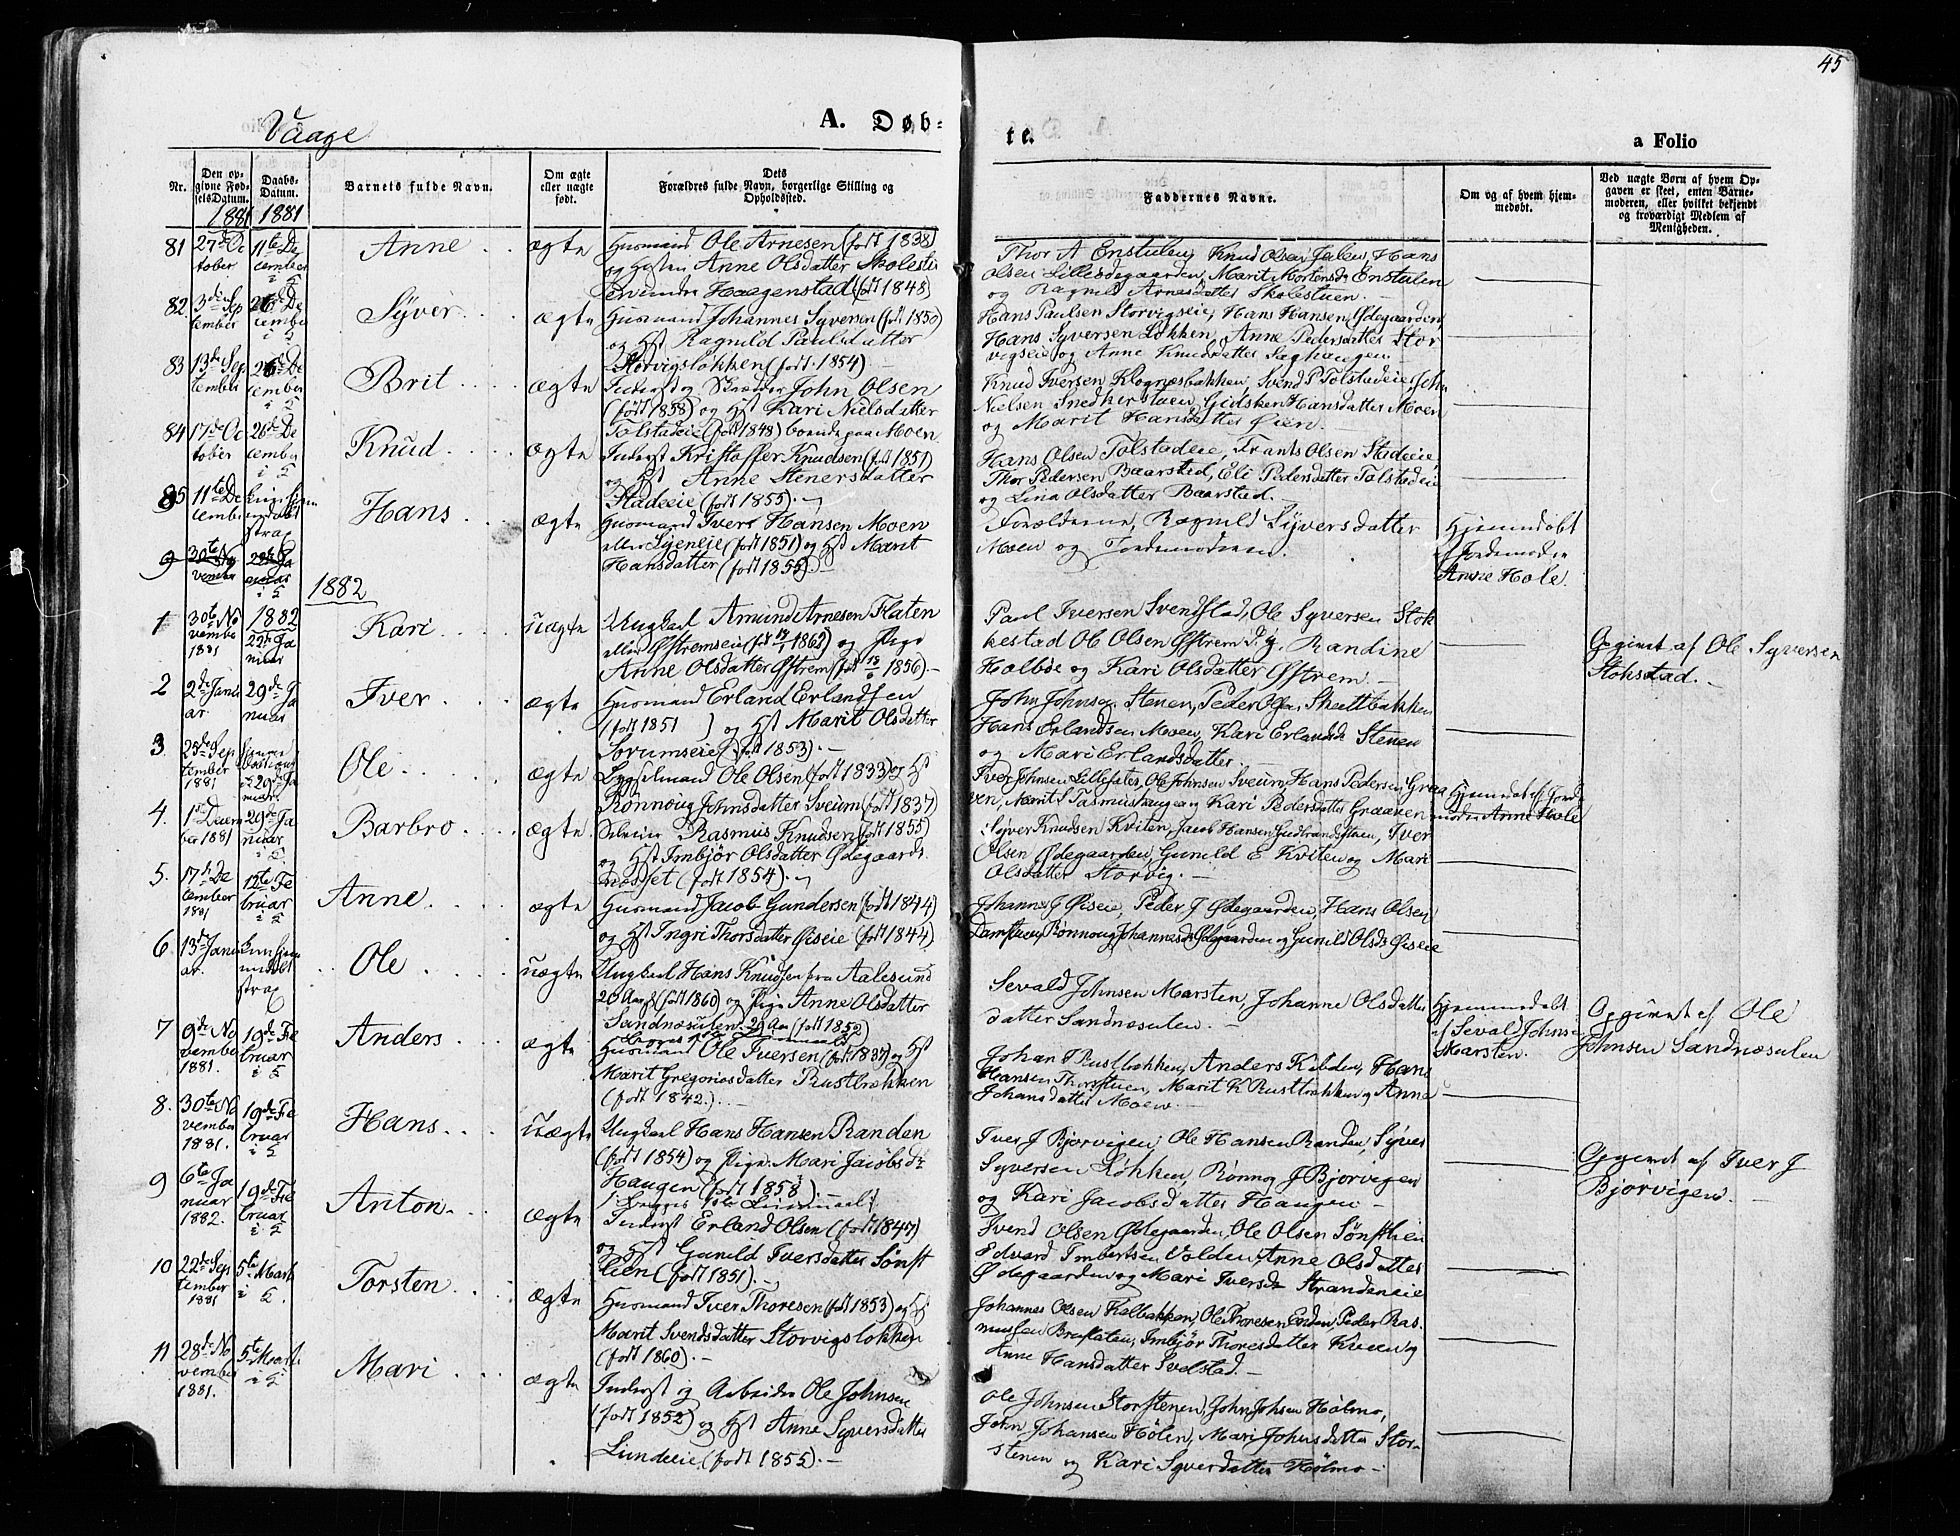 45
Vaage
A. Døb-
te.
a Folio
Nr.
Den op-
givne Fød-
selsDatum.
Daabs-
Datum.
Barnets fulde Navn.
Om ægte
eller uægte
født.
Dets
Forældres fulde Navn, borgerlige Stilling og
Opholdssted.
Faddernes Navne.
Om og af hvem hjem-
medøbt.
Ved uægte Børn af hvem Op-
gaven er skeet, enten Barne-
moderen, eller hvilket bekjendt
og troværdigt Medlem af
Menigheden.
1881
1881
81
27de Oc
tober
11te De
cember
i K
Anne
ægte
Husmand Ole Arnesen (født 1838)
og Hustru Anne Olsdatter Skolestu
Haagenstad (født 1848)
Thor A Enstulen, Knud Olsen, Hans
Olsen Lillesdegaarden, Marit Mortensdr Enstulen
og Ragnild Arnesdatter Skolestuen.
82.
3de Sep
tember
26de De
cember
i K
Syver
ægte
Husmand Johannes Syversen (født 1850)
og Hst Ragnild Paulsdatter
Storvigsløkken (født 1854)
Hans Paulsen Storvigseie, Hans Hansen, Ødegaarden,
Hans Syversen Løkken, Anne Pedersdatter Stor
vigseie og Anne Knudsdatter Saghaugen
83
13de Sep
tember
26de De
cember
i K
Brit
ægte
Inderst og Skrædder John Olsen
(født 1858) og Hst Kari Nielsdatter
Tolstadeie (født 1848) boende paa Moen
Knud Iversen Klognæsbakken, Svend P Tolstadeie, John
Nielsen Snedkerstuen, Gidsken Hansdatter Moen
og Marit Hansdatter Øien.
84
17de Oc
tober
26de De
cember
i K
Knud
ægte
Inderst Kristoffer Knudsen (født 1851)
og Hst Anne Stenersdatter
Stadeeie (født 1855).
Hans Olsen Tolstadeie, Frants Olsen Stadeeie,
Thor Pedersen Baarstad, Eli Pedersdatter Tolstadeie
og Lina Olsdatter Baarstad.
85
11te De
cember
kun hjem
medøbt
strax
Hans
ægte
Husmand Iver Hansen Moen
eller Øieneie (født 1851) og Hst Marit
Hansdatter (født 1855).
Forældrene, Ragnild Syversdatter
Moen og Jordemoderen.
Hjemmedøbt
af Jordemoder
Anne Hole.
9
30te No
vember
22de Ja
nuar
i K
1882
1
30te No
vember
1881
1882
22de Ja
nuar
Kari
uægte
Ungkarl Amund Arnesen Flaten
eller Østremseie (født 1862) og Pige
Anne Olsdatter Østrem (født 1856).
Paul Iversen Svendstad, Ole Syversen Stok
kestad Ole Olsen Østrem Pg. Randine
Holbøe og Kari Olsdatter Østrem.
Opgivet af Ole Syversen
Stokstad.
2
2de Janu
ar
29de Ja
nuar
Iver
ægte
Husmand Erland Erlandsen
(født 1851 ) og Hst Marit Olsdatter
Sorumseie (født 1853).
John Johnsen Stenen, Peder Olsen Skattbakken
Hans Erlandsen Moen, Kari Erlandsdr Stenen
og Mari Erlandsdatter.
3
25de Sep
tember
1881
29de Ja
nuar
Ole
ægte
Bygselmand Ole Olsen (født 1833) og Hst
Rønnoug Johnsdatter Sveum (født 1837)
Iver Johnsen Lillesæter, Ole Johnsen Sveum, Hans Pedersen Graa
ven, Marit S Tasmushaugen og Kari Pedersdatter Graaven
Hjemmedøbt af Jorde
moder Anne Hole
4.
1ste Decem
ber 1881
29de Ja
nuar
i K
Barbro
ægte
Selveier Rasmus Knudsen (født 1855)
og Hst Imbjør Olsdatter Ødegaards
næsset (født 1854).
Syver Knudsen Kviten, Jacob Hansen Gudbrandstuen, Iver
Olsen Ødegaarden, Gunild E Kviten og Mari
Olsdatter Storvig.
5.
17de De
cember
1881
12te Fe
bruar
i K
Anne
ægte
Husmand Jacob Gundersen (født 1844)
og Hst Ingri Thorsdatter Øiseie (født 1844)
Johannes J Øiseie, Peder J Ødegaarden, Hans Olsen
Damstuen, Rønnoug Johannesdr Ødegaarden og Gunild Olsdr Øiseie
6.
13de Janu
ar.
kun hjem
medøbt
strax
Ole
uægte
Ungkarl Hans Knudsen fra Aalesund
20 Aar (født 1860) og Pige Anne Olsdatter
Sandnæsulen 29 Aar (født 1852)
Sevald Johnsen Marsten, Johanne Olsdatter
datter Sandnæsulen.
Hjemmedøbt
af Sevald Johnsen
Marsten.
Opgivet af Ole
Johnsen Sandnæsulen
7
9de No
vember
1881.
19de Fe
bruar
i K
Anders
ægte
Husmand Ole Iversen (født 1837) og Hst
Marit Gregoriosdatter Rustbrækken
(født 1842.).
Johan T Rustbrækken, Anders Kilden, Hans
Hansen Thorstuen, Marit K Rustbrækken og Anne
Johansdatter Moen.
8.
30te No
vember
1881.
19de Fe
bruar
i K
Hans
uægte
Ungkarl Hans Hansen Randen
(født 1854) og Pige Mari Jacobsdr
Haugen (født 1858).
Iver J Bjorvigen, Ole Hansen Randen, Syver
Syversen Løkken, Rønnog J Bjorvigen
og Kari Jacobsdatter Haugen
Opgivet af Iver J
Bjorvigen.
9
6te Ja
nuar
1882.
19de Fe
bruar
i K
Anton
ægte
Inderst Erland Olsen (født 1847)
og Hst Gunild Iversdatter Sønst
lien (født 1851).
Svend Olsen Ødegaarden, Ole Olsen Sønstlien
Edvard Imbertsen Volden, Anne Olsdatter
Ødegaarden og Mari Iversdr Strandeneie
10
22de Sep
tember
1881
5te Marts
i K.
Torsten
ægte
Husmand Iver Thoresen (født 1853) og Hst
Marit Svendsdatter Storvigsløkken
(født 1860).
Johannes Olsen Kalbakken, Ole Thoresen Enden, Peder Ras-
mussen Bruflaten, Imbjør Thoresdatter og
Anne Hansdatter Svelstad.
11
28de No
vember
1881.
5te Marts
i K
Mari
ægte
Inderst og Arbeider Ole Johnsen
(født 1852) og Hst Anne Syversdatter
Lundeeie (født 1855).
Ole Johnsen Storstenen, John Johsen Holmo,
John Johansen Hølen, Mari Johnsdatter Stor-
stenen og Kari Syverdatter Holmo